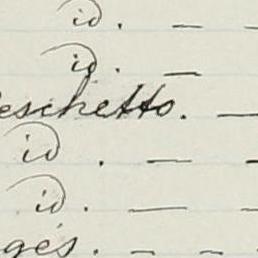 id. — —
id. —
eschetto. —
id. — —
id. — —
ges. — — —